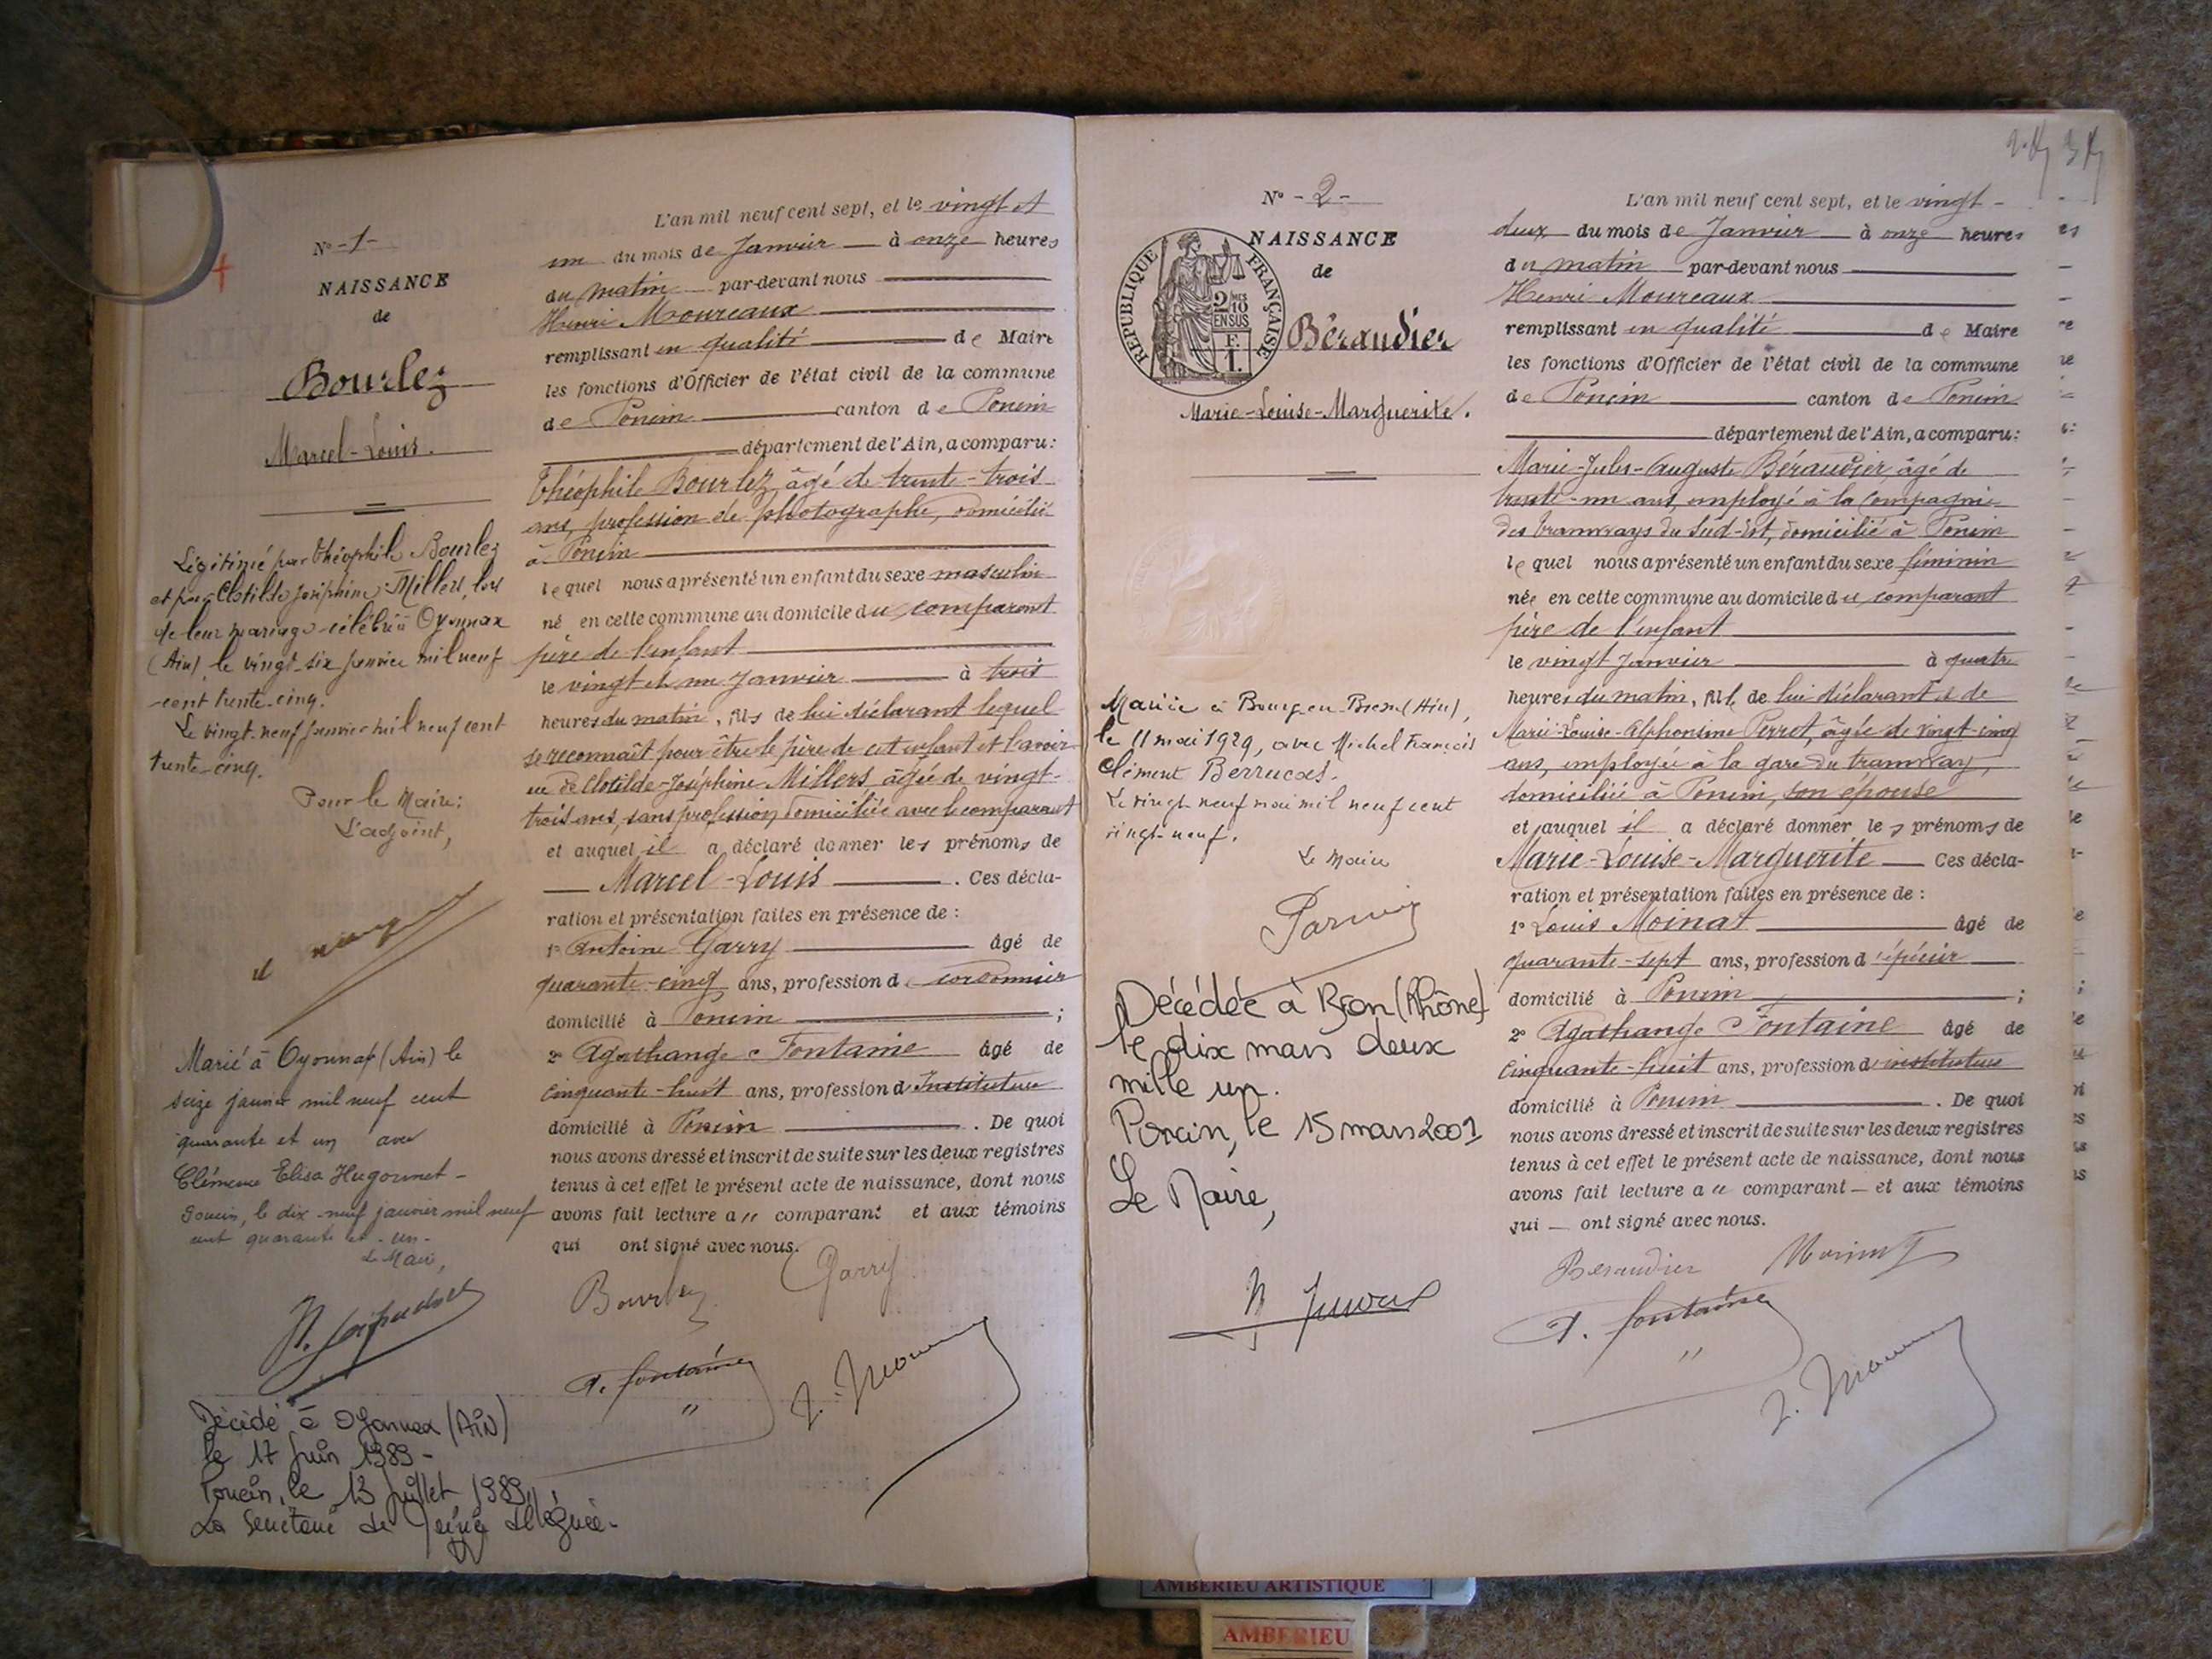 N° -1-
NAISSANCE
de
Bourlez
Marcel-Louis.
Légitimé par Théophile Bourlez
et par Clotilde Joséphine Millers, lors
de leur mariage célébré à Oyonnax
(Ain), le vingt-six janvier mil neuf
cent trente-cinq.
Le vingt-neuf janvier mil neuf cent
trente-cinq.
Pour le Maire:
L'adjoint,
Marié à Oyonnax (Ain) le
seize janvier mil neuf cent
quarante et un avec
Clémence Elisa Hugonnet-
Poncin, le dix-neuf janvier mil neuf
cent quarante et -un-
Le Maire,
Décédé à Oyonnax (AIN)
le 17 Juin 1989-
Poncin, le 13 Juillet 1989,
La Secrétaire de Mairie déléguée-
L'an mil neuf cent sept, et le vingt et
un du mois de Janvier à onze heures
du matin par-devant nous
Henri Moureaux
remplissant en qualité de Maire
les fonctions d'Officier de l'état civil de la commune
de Poncin canton de Poncin
département de l'Ain, a comparu:
Théophile Bourlez, âgé de trente-trois
ans, profession de photographe, domicilié
à Poncin
lequel nous a présenté un enfant du sexe masculin
né en cette commune au domicile du comparant
père de l'enfant
le vingt et un Janvier à trois
heures du matin, fils de lui déclarant lequel
se reconnaît pour être le père de cet enfant et l'avoir
eu de Clotilde-Joséphine Millers, âgée de vingt-
trois ans, sans profession, domiciliée avec le comparant
et auquel il a déclaré donner les prénoms de
Marcel-Louis. Ces décla-
ration et présentation faites en présence de :
1° Antoine Garry âgé de
quarante-cinq ans, profession de cordonnier
domicilié à Poncin ;
2° Agathange Fontaine âgé de
cinquante-huit ans, profession d'Instituteur
domicilié à Poncin. De quoi
nous avons dressé et inscrit de suite sur les deux registres
tenus à cet effet le présent acte de naissance, dont nous
avons fait lecture au comparant et aux témoins
qui ont signé avec nous.
Bourlez Garry
A. Fontaine
N° -2-
NAISSANCE
de
RÉPUBLIQUE FRANÇAISE
2/10
EN SUS
F.
1.
Béraudier
Marie-Louise-Marguerite.
Mariée à Bourg-en-Bresse (Ain),
le 11 mai 1929, avec Michel François
Clément Berrucas.
Le vingt-neuf mai mil neuf cent
vingt-neuf.
Le Maire
Décédée à Bron (Rhône)
le dix mars deux
mille un.
Poncin, le 15 mars 2001
Le Maire,
L'an mil neuf cent sept, et le vingt-
deux du mois de Janvier à onze heures
du matin par-devant nous
Henri Moureaux
remplissant en qualité de Maire
les fonctions d'Officier de l'état civil de la commune
de Poncin canton de Poncin
département de l'Ain, a comparu:
Marie-Jules-Auguste Béraudier, âgé de
trente-un ans, employé à la Compagnie
des tramways du Sud-Est, domicilié à Poncin
lequel nous a présenté un enfant du sexe féminin
née en cette commune au domicile du comparant
père de l'enfant
le vingt Janvier à quatre
heures du matin, fille de lui déclarant et de
Marie-Louise-Alphonsine Perret, âgée de vingt-cinq
ans, employée à la gare du tramway,
domiciliée à Poncin, son épouse
et auquel il a déclaré donner les prénoms de
Marie-Louise-Marguerite Ces décla-
ration et présentation faites en présence de :
1° Louis Moinat âgé de
quarante-sept ans, profession d'épicier
domicilié à Poncin ;
2° Agathange Fontaine âgé de
cinquante-huit ans, profession d'instituteur
domicilié à Poncin. De quoi
nous avons dressé et inscrit de suite sur les deux registres
tenus à cet effet le présent acte de naissance, dont nous
avons fait lecture au comparant et aux témoins
qui ont signé avec nous.
Beraudier Moinat
A. Fontaine
AMBERIEU ARTISTIQUE
AMBERIEU